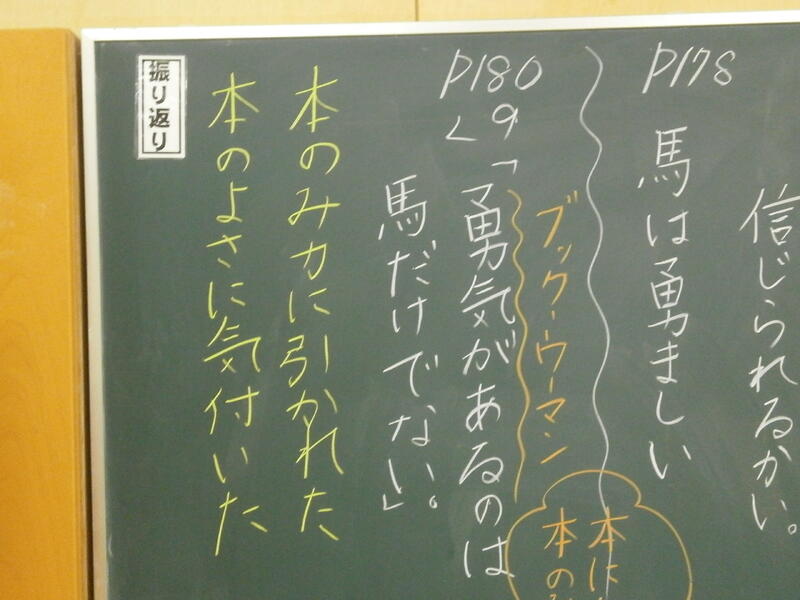 信じられるかい。
P178
馬は勇ましい
本に
本の
ブックウーマン
P180
く9
「勇気があるのは
馬だけでない」。
本のみ力に引かれた
本のよさに気付いた
振り返り